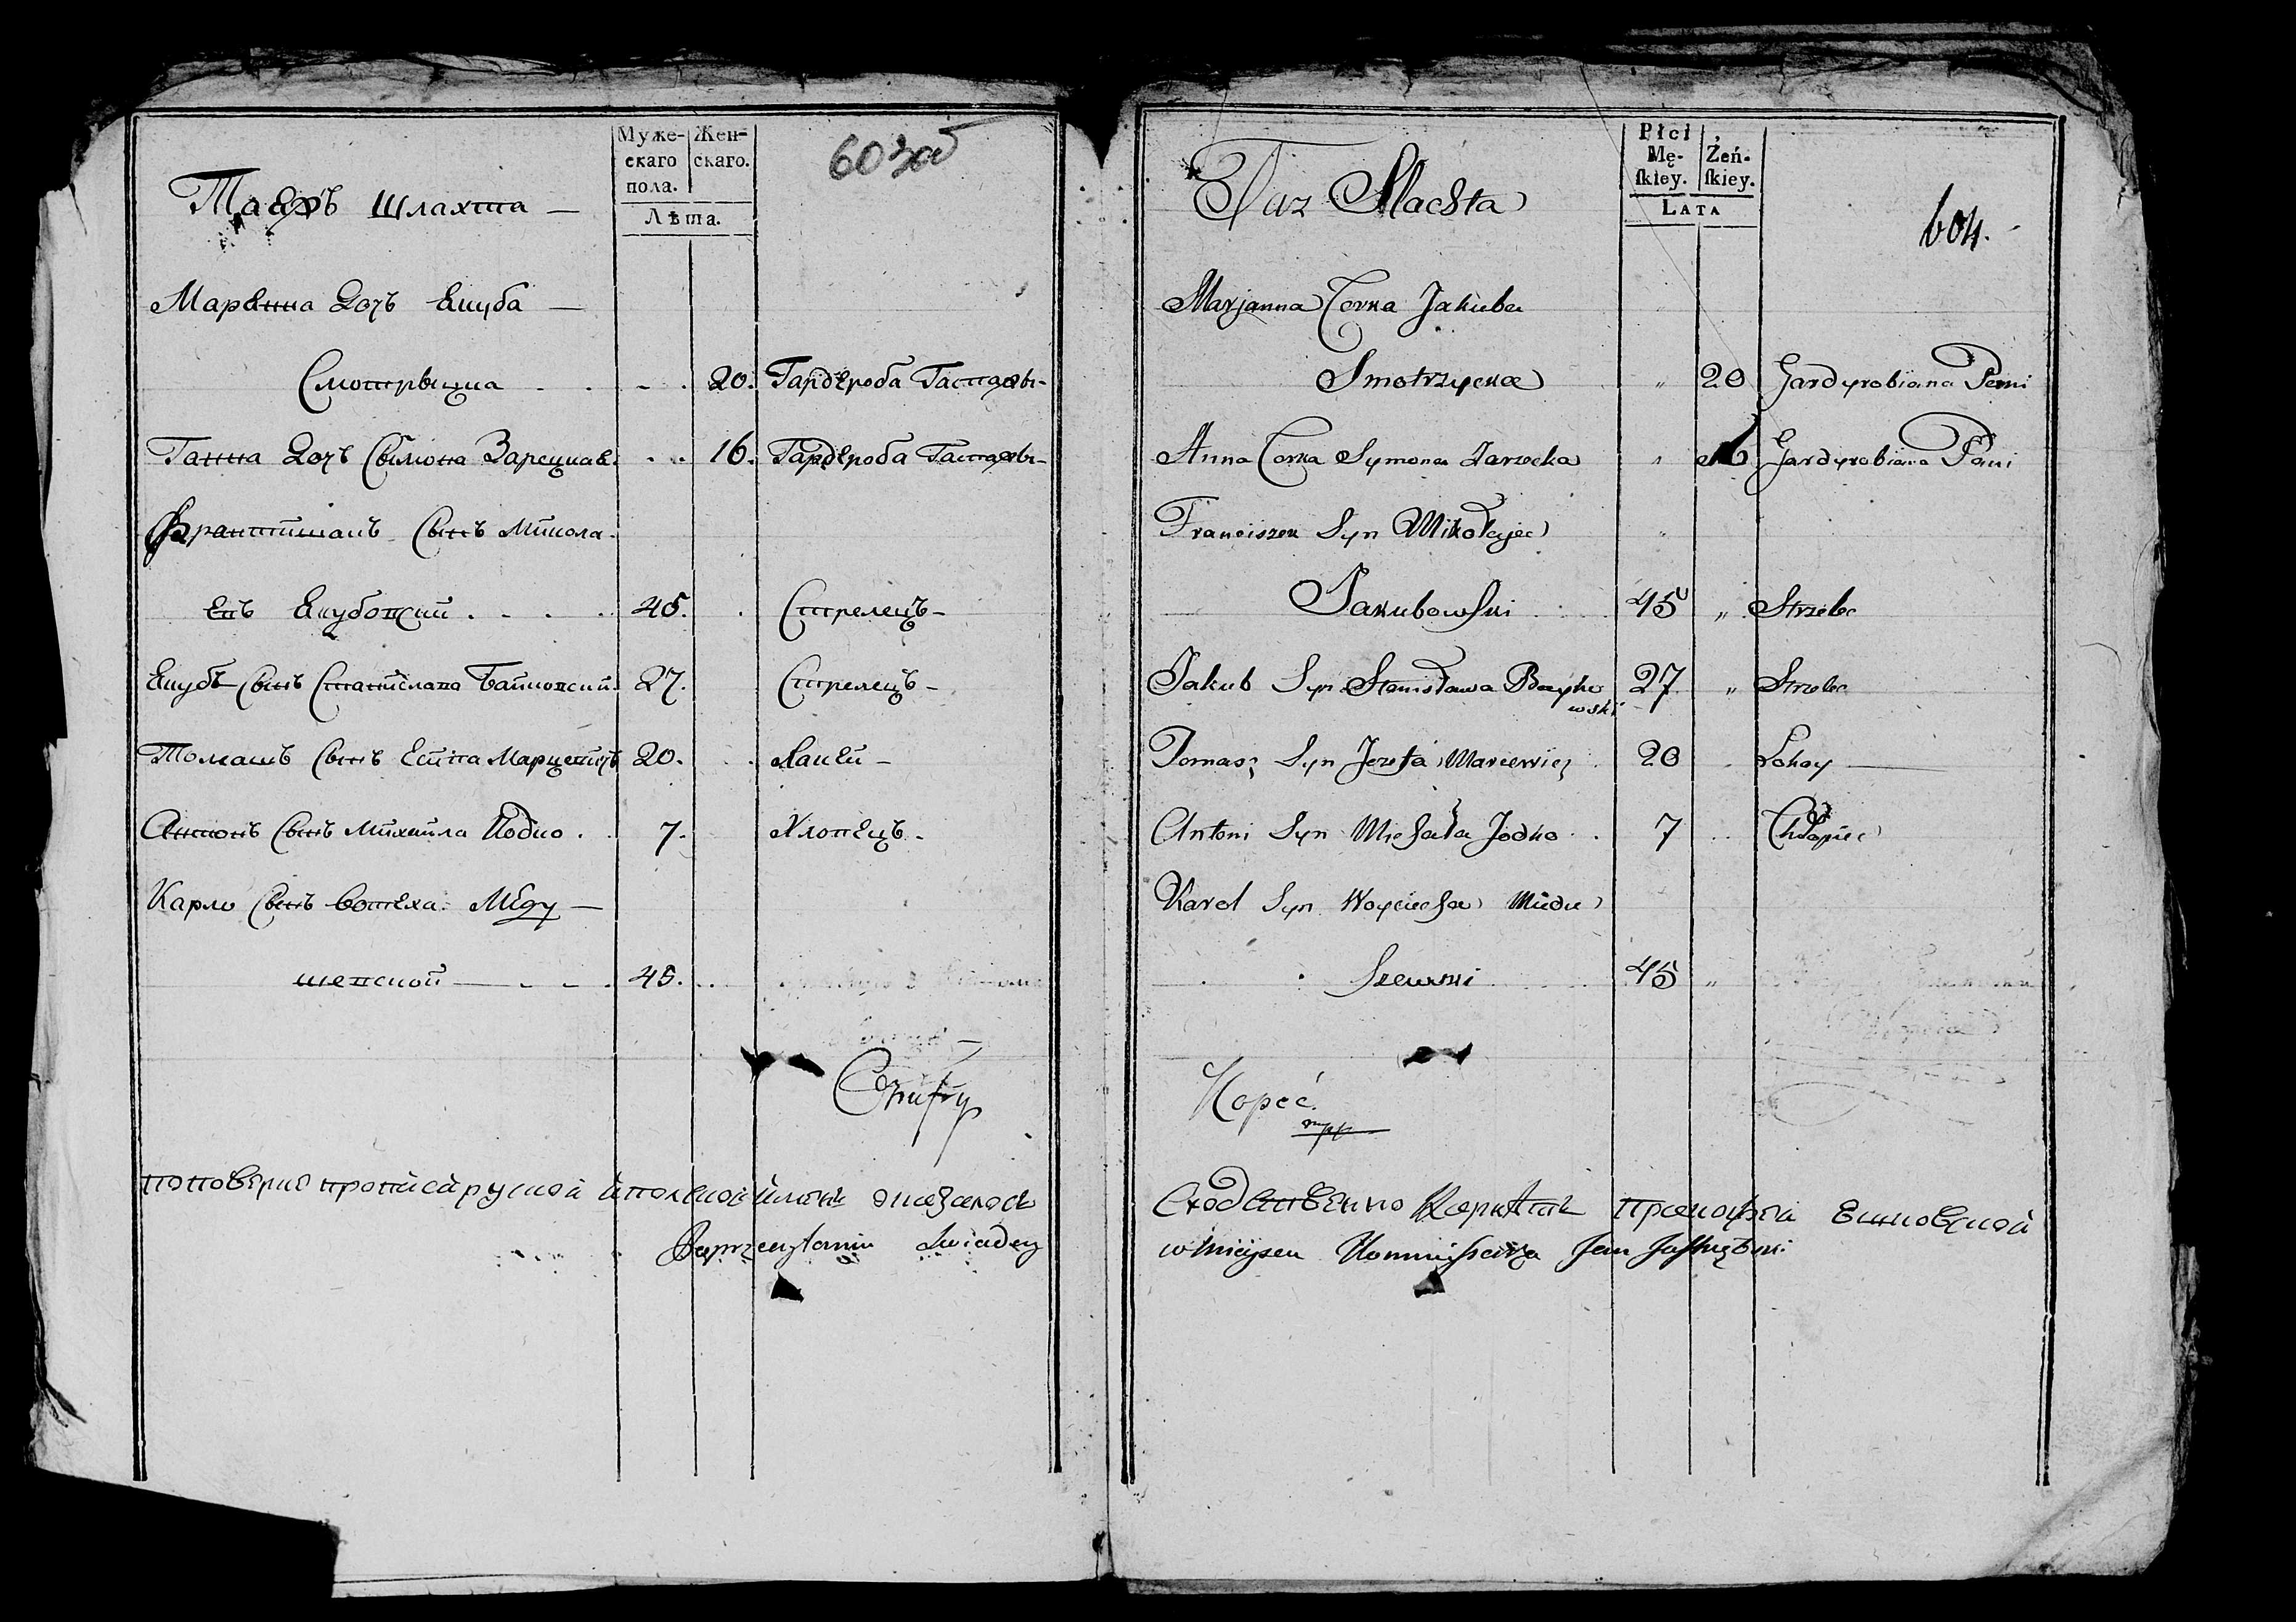 Муже-
скаго
пола.
Жен-
скаго.
Лѣта.
603об
Шлахта —
Маренна Дочь Екуба —
Смотрыцка . . - . 20. Гардероба
Ганна Дочь Сымона Зарецкая . . 16. Гардероба
Францишакъ Сынъ Микола-
евъ Екубовский . . . . 45. . Стрелецъ -
Екубъ Сынъ Станислава Байковский 27. Стрелецъ -
Томашъ Сынъ Есипа Марцевичъ 20. . . Лакей -
Антонъ Сынъ Михаила Йодко . . 7. Хлопецъ -
Карло Сынъ Вотеха Меду —
шевской — - - . 45. . .
по поверке
Swiadczę
Płci
Mę-
ſkiey.
Żeń-
ſkiey.
Lata
604.
Taż Slachta
Marjanna Corka Jakuba
Smotrzycka „ 20 Gardyrobiana Pani
Anna Corka Symona Zarzecka „ 16 Gardyrobiana Pani
Franciszek Syn Mikołaja „
Jakubowski . . 45 „ Strzelec
Jakub Syn Stanisława Bayko
wski 27 „ Strzelec
Tomasz Syn Jozefa Marcewicz . 20 . Lokay —
Antoni Syn Michała Jodko . . 7 . . Chłopiec
Karol Syn Woyciecha Miedu
Szewski . . . 45 „
Kopeć
mpp
w mieyscu Kommissarza Jan